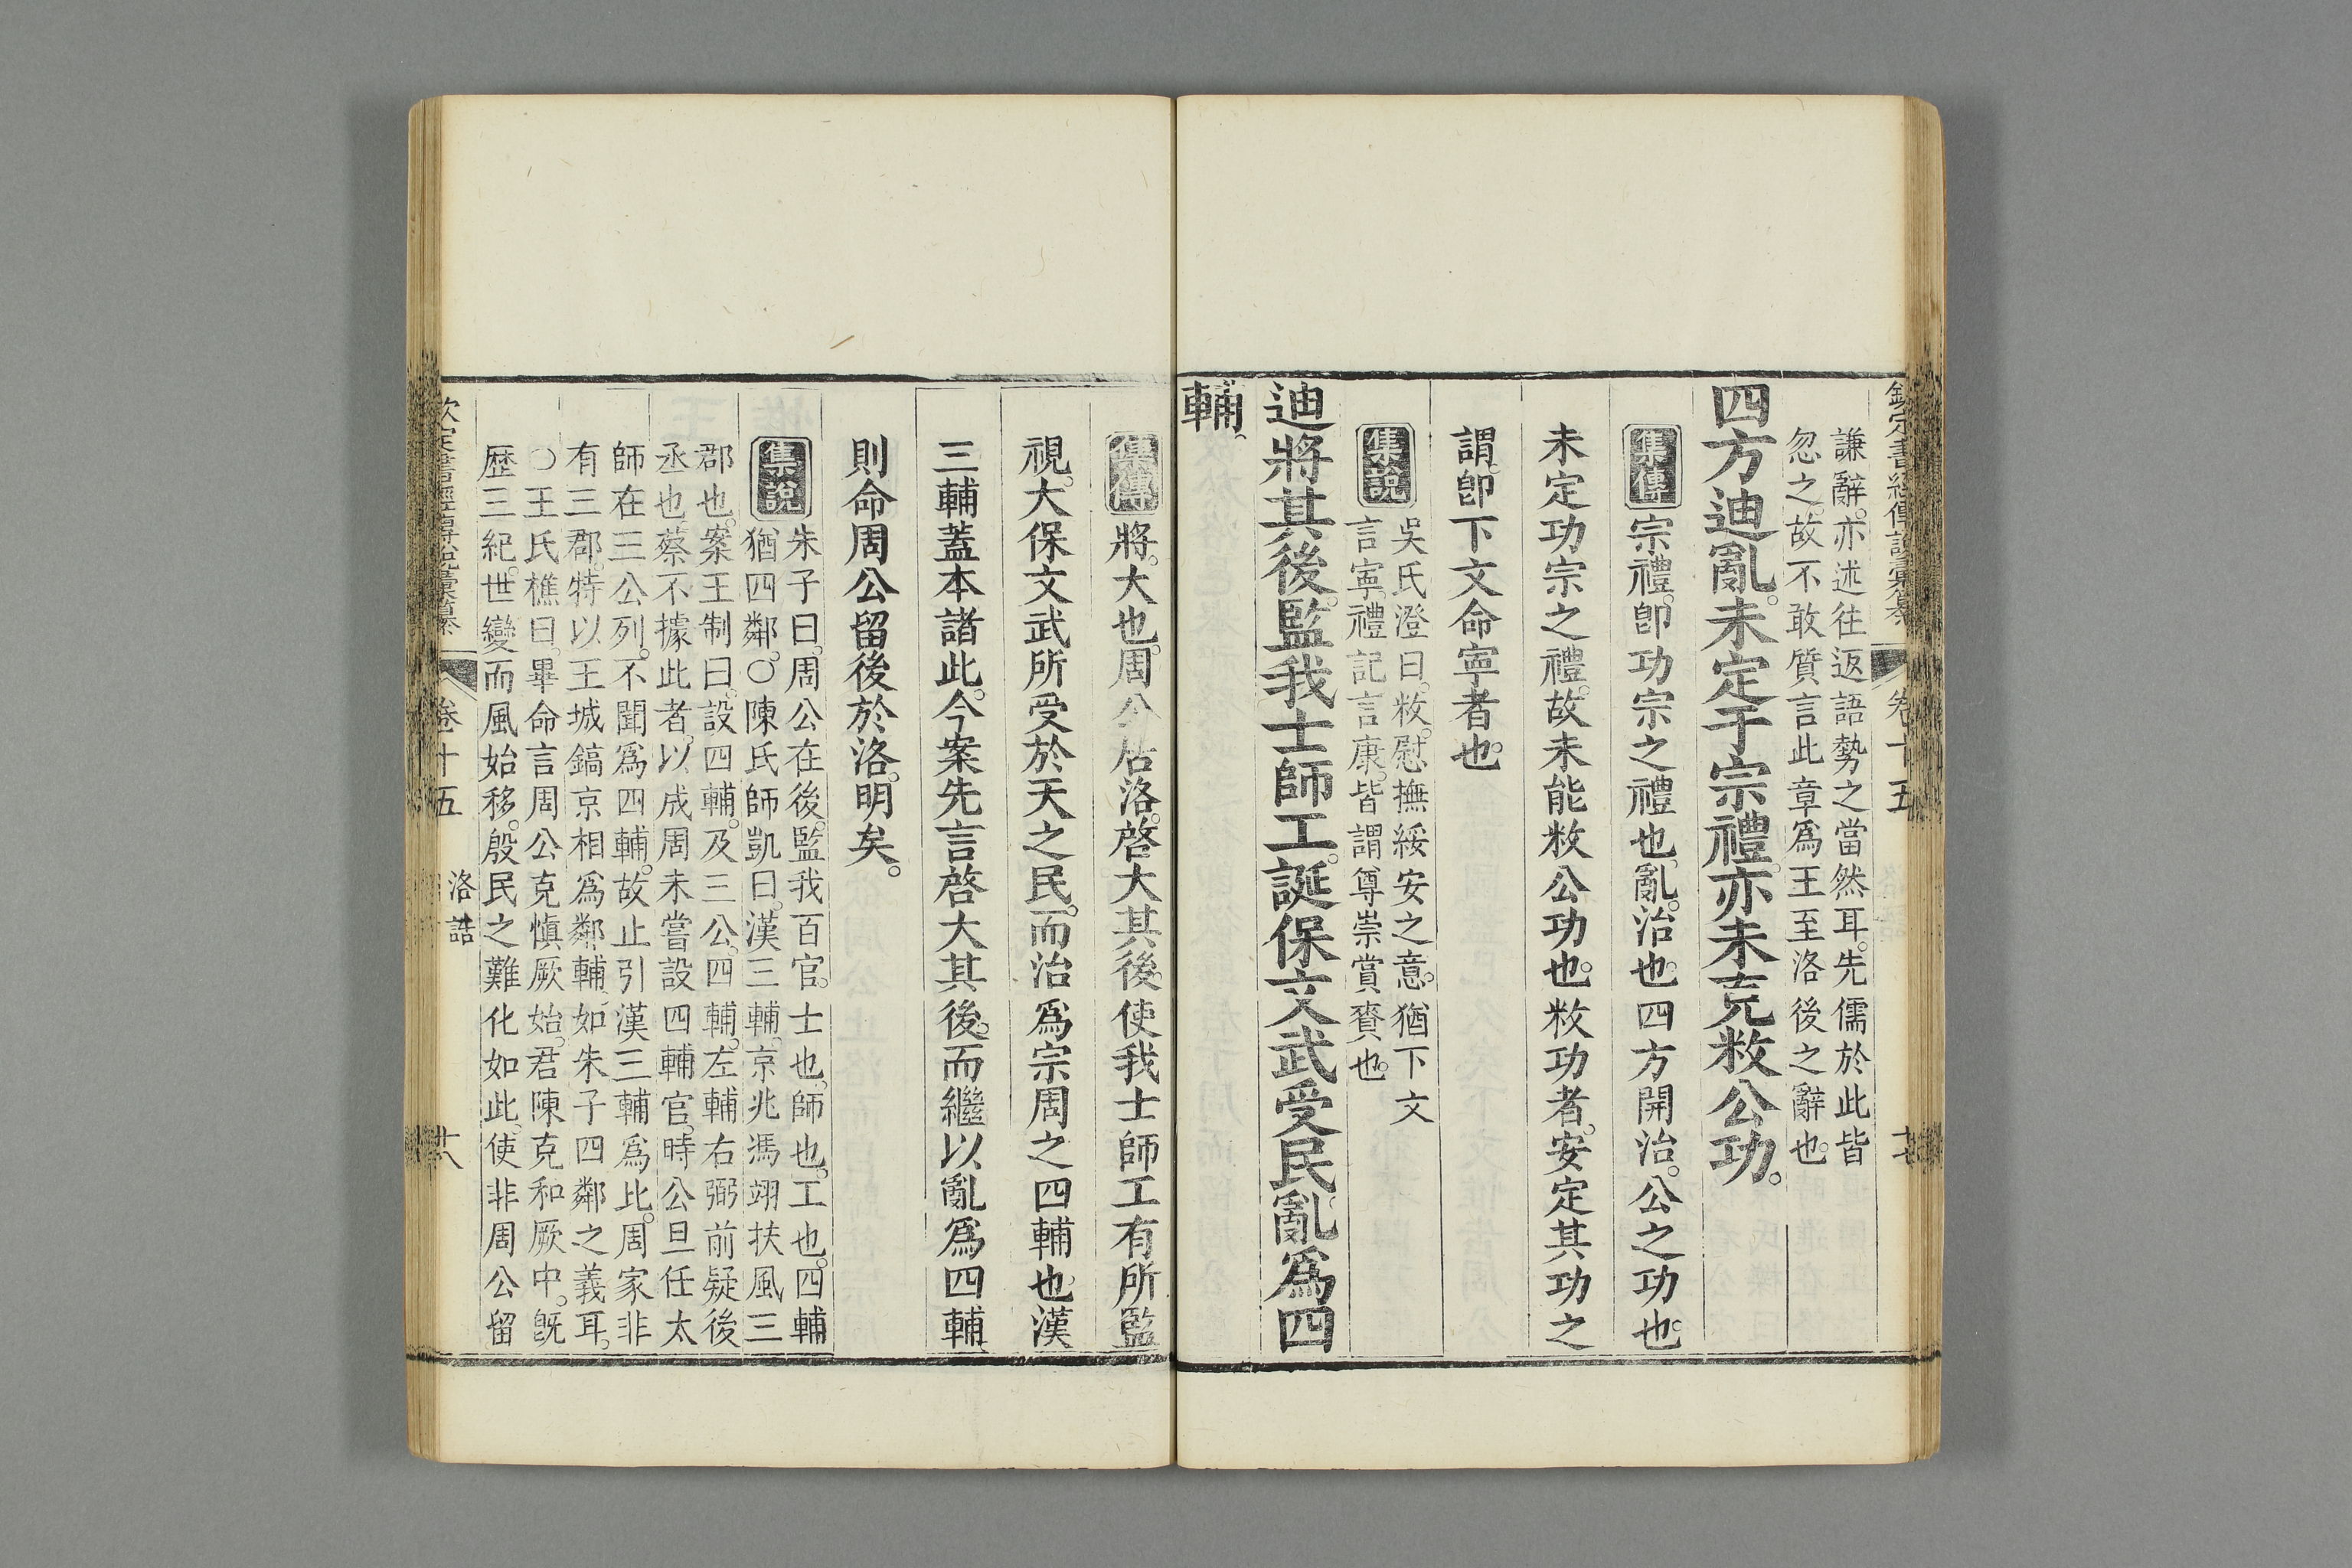 欽定書經傳說彙纂 卷十五 十七
謙辭。亦述往返語勢之當然耳。先儒於此皆
忽之。故不敢質言此章爲王至洛後之辭也。
四方迪亂。未定于宗禮。亦未克敉公功。
集傳 宗禮。卽功宗之禮也。亂。治也。四方開治。公之功也。
未定功宗之禮。故未能敉公功也。敉功者。安定其功之
謂。卽下文命寧者也。
集說 吳氏澄曰。敉。慰撫綏安之意。猶下文
言寧。禮記言康。皆謂尊崇賞賚也。
迪將其後。監我士師工。誕保文武受民。亂爲四
輔。
集傳 將。大也。周公居洛。啓大其後。使我士師工有所監
視。大保文武所受於天之民。而治爲宗周之四輔也。漢
三輔蓋本諸此。今案先言啓大其後。而繼以亂爲四輔
則命周公留後於洛。明矣。
集說 朱子曰。周公在後。監我百官。士也。師也。工也。四輔
猶四鄰。○陳氏師凱曰。漢三輔。京兆馮翊扶風三
郡也。案王制曰。設四輔。及三公。四輔。左輔右弼前疑後
丞也。蔡不據此者。以成周未嘗設四輔官。時公旦任太
師在三公列。不聞爲四輔。故止引漢三輔爲比。周家非
有三郡。特以王城鎬京相爲鄰輔。如朱子四鄰之義耳。
○王氏樵曰。畢命言周公克慎厥始。君陳克和厥中。旣
歷三紀。世變而風始移。殷民之難化如此。使非周公留
欽定書經傳說彙纂 卷十五 洛誥 十八